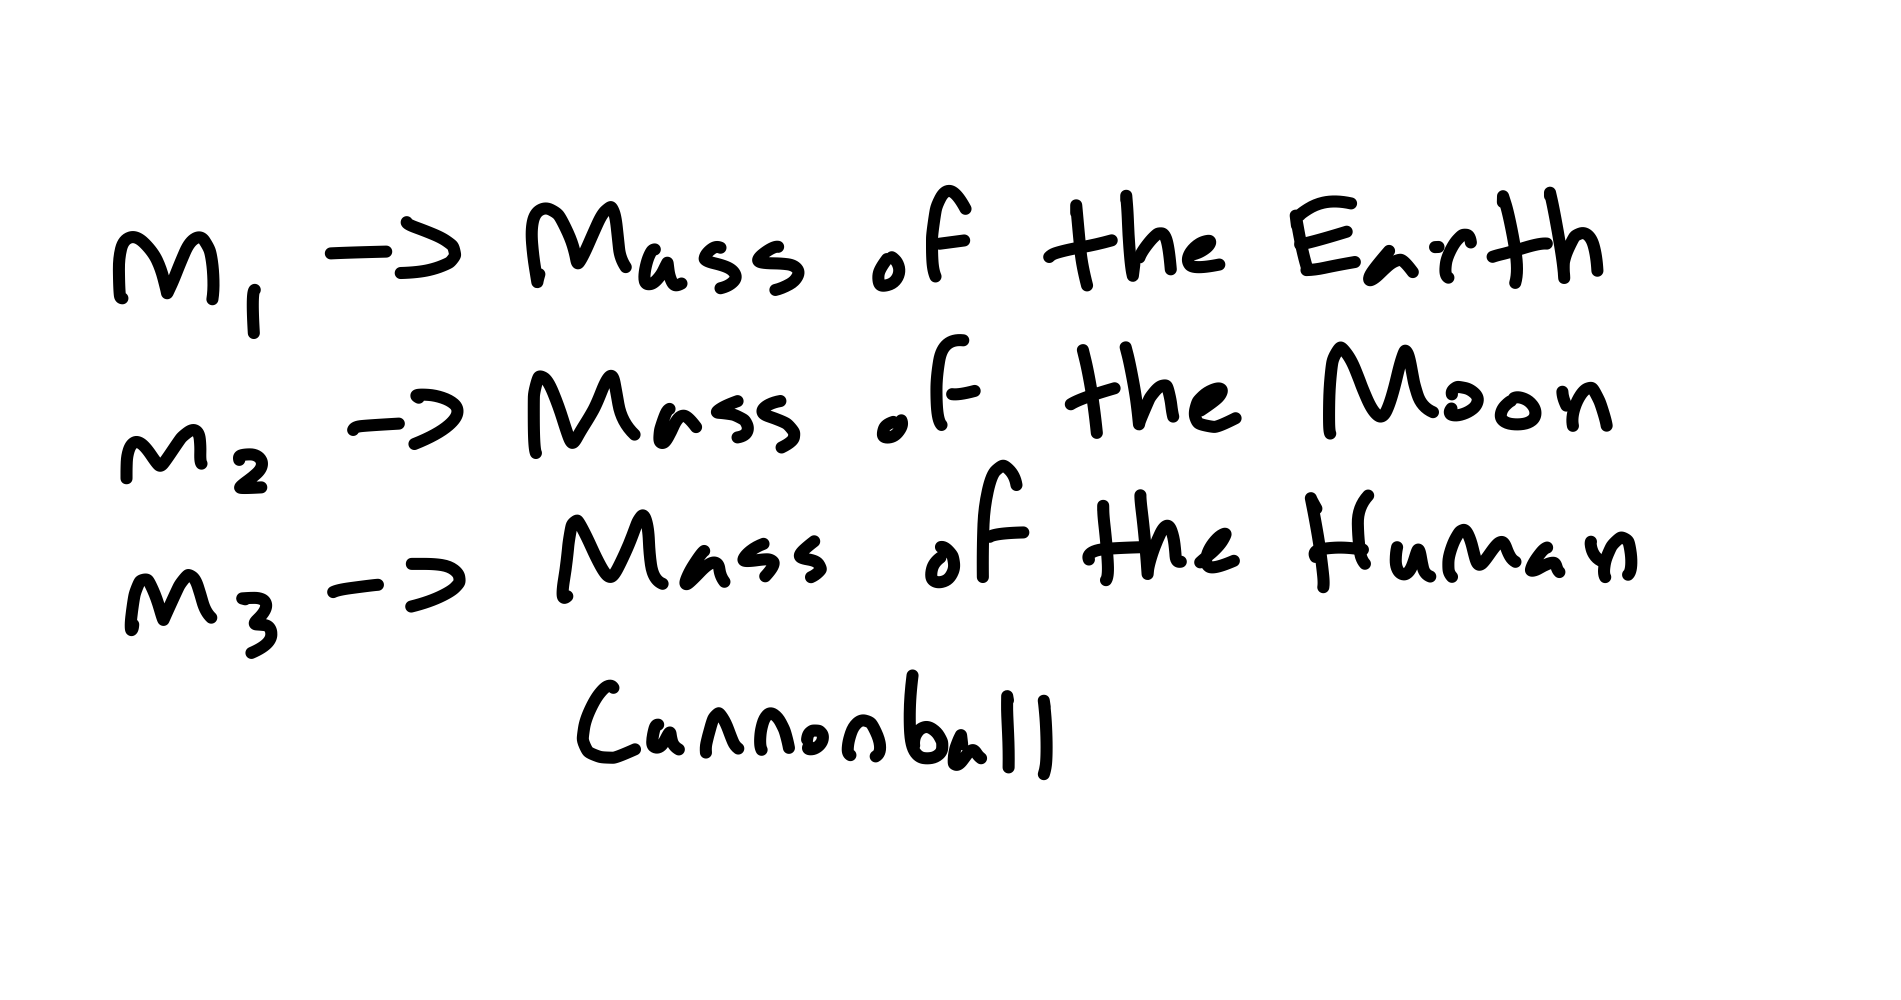 M₁ -> Mass of the Earth
M₂ -> Mass of the Moon
M₃ -> Mass of the Human
Cannonball